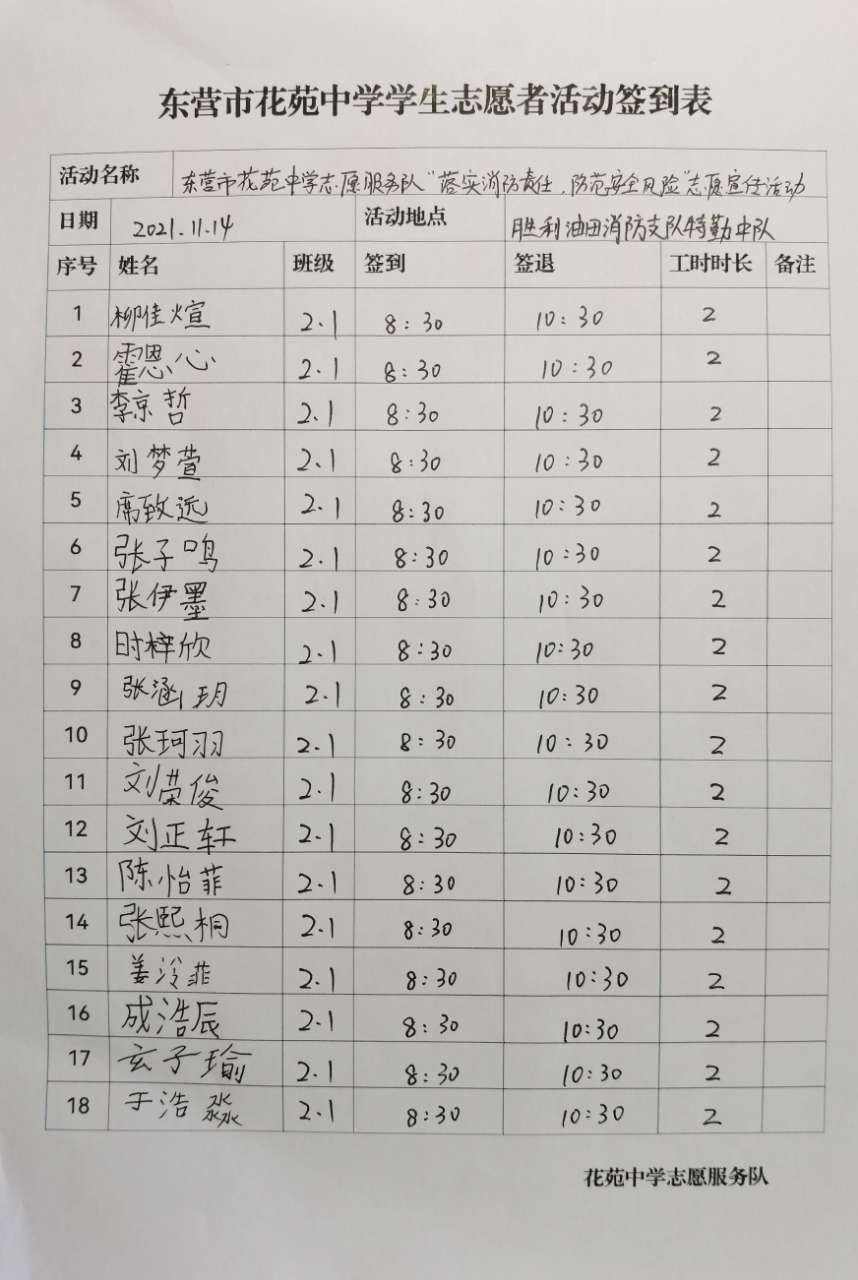 东营市花苑中学学生志愿者活动签到表
活动名称 东营市花苑中学志愿服务队“落实消防责任，防范安全风险”志愿宣传活动
日期 2021.11.14 活动地点 胜利油田消防支队特勤中队
序号 姓名 班级 签到 签退 工时时长 备注
1 柳佳煊 2.1 8:30 10:30 2
2 霍恩心 2.1 8:30 10:30 2
3 李京哲 2.1 8:30 10:30 2
4 刘梦萱 2.1 8:30 10:30 2
5 席致远 2.1 8:30 10:30 2
6 张子鸣 2.1 8:30 10:30 2
7 张伊墨 2.1 8:30 10:30 2
8 时梓欣 2.1 8:30 10:30 2
9 张涵玥 2.1 8:30 10:30 2
10 张珂羽 2.1 8:30 10:30 2
11 刘荣俊 2.1 8:30 10:30 2
12 刘正轩 2.1 8:30 10:30 2
13 陈怡菲 2.1 8:30 10:30 2
14 张熙桐 2.1 8:30 10:30 2
15 姜泠菲 2.1 8:30 10:30 2
16 成浩辰 2.1 8:30 10:30 2
17 玄子瑜 2.1 8:30 10:30 2
18 于浩淼 2.1 8:30 10:30 2
花苑中学志愿服务队